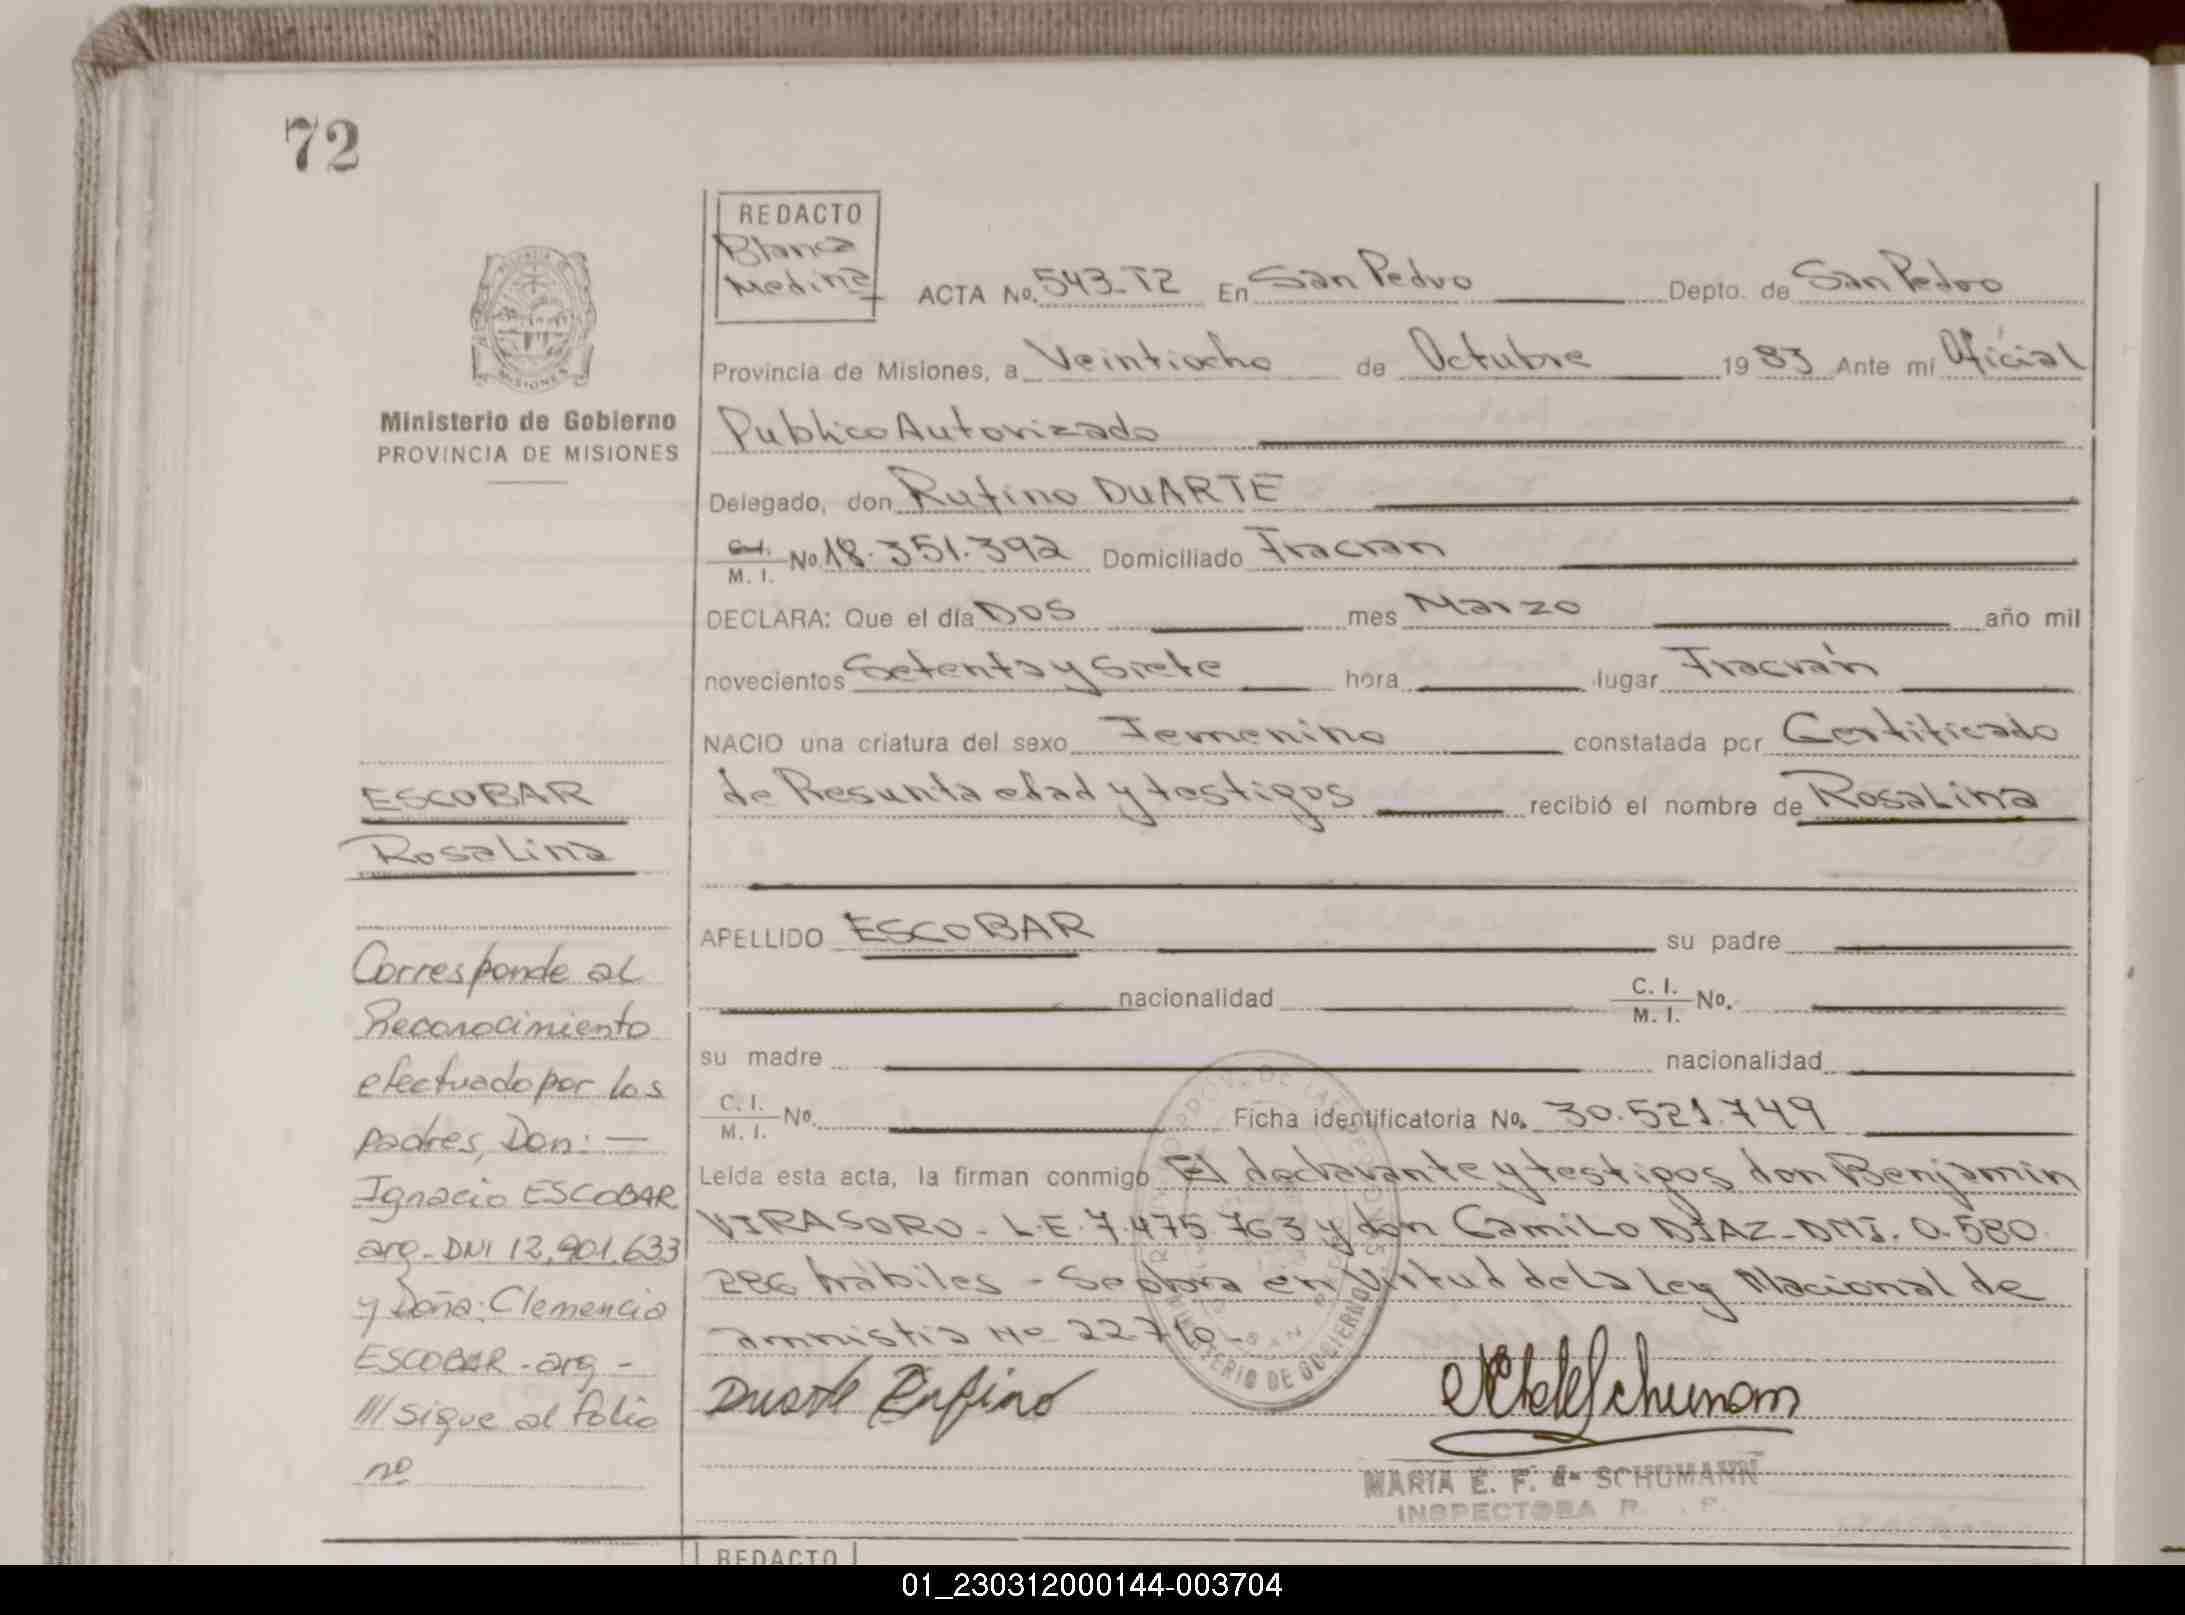 72
REDACTO
Blanca
Medina
ACTA No. 543-T2 En San Pedro Depto. de San Pedro
Provincia de Misiones, a Veintiocho de Octubre 1983 Ante mí Oficial
Ministerio de Gobierno
PROVINCIA DE MISIONES
Publico Autorizado
Delegado, don Rufino DUARTE
C. I. / M. I. No. 18.351.392 Domiciliado Fracran
DECLARA: Que el día Dos mes Marzo año mil
novecientos Setenta y Siete hora lugar Fracrán
NACIO una criatura del sexo Femenino constatada por Certificado
de Presunta edad y testigos recibió el nombre de Rosalina
ESCOBAR
Rosalina
APELLIDO ESCOBAR su padre
nacionalidad C. I. / M. I. No.
su madre nacionalidad
C. I. / M. I. No. Ficha identificatoria No. 30.521.749
Leída esta acta, la firman conmigo El declarante y testigos don Benjamin
VIRASORO - L.E. 7.475.763 y don Camilo DIAZ - DNI. 0.580.
286 hábiles - Se obra en Virtud de la Ley Nacional de
amnistia Nº 22710-
Corresponde al
Reconocimiento
efectuado por los
padres, Don: —
Ignacio ESCOBAR
arg - DNI 12.901.633
y Doña: Clemencia
ESCOBAR - arg -
/// sigue al folio
nº
Duarte Rufino
MINISTERIO DE GOBIERNO
MARIA E. F. de SCHUMANN
INSPECTORA R. P.
REDACTO
01_230312000144-003704